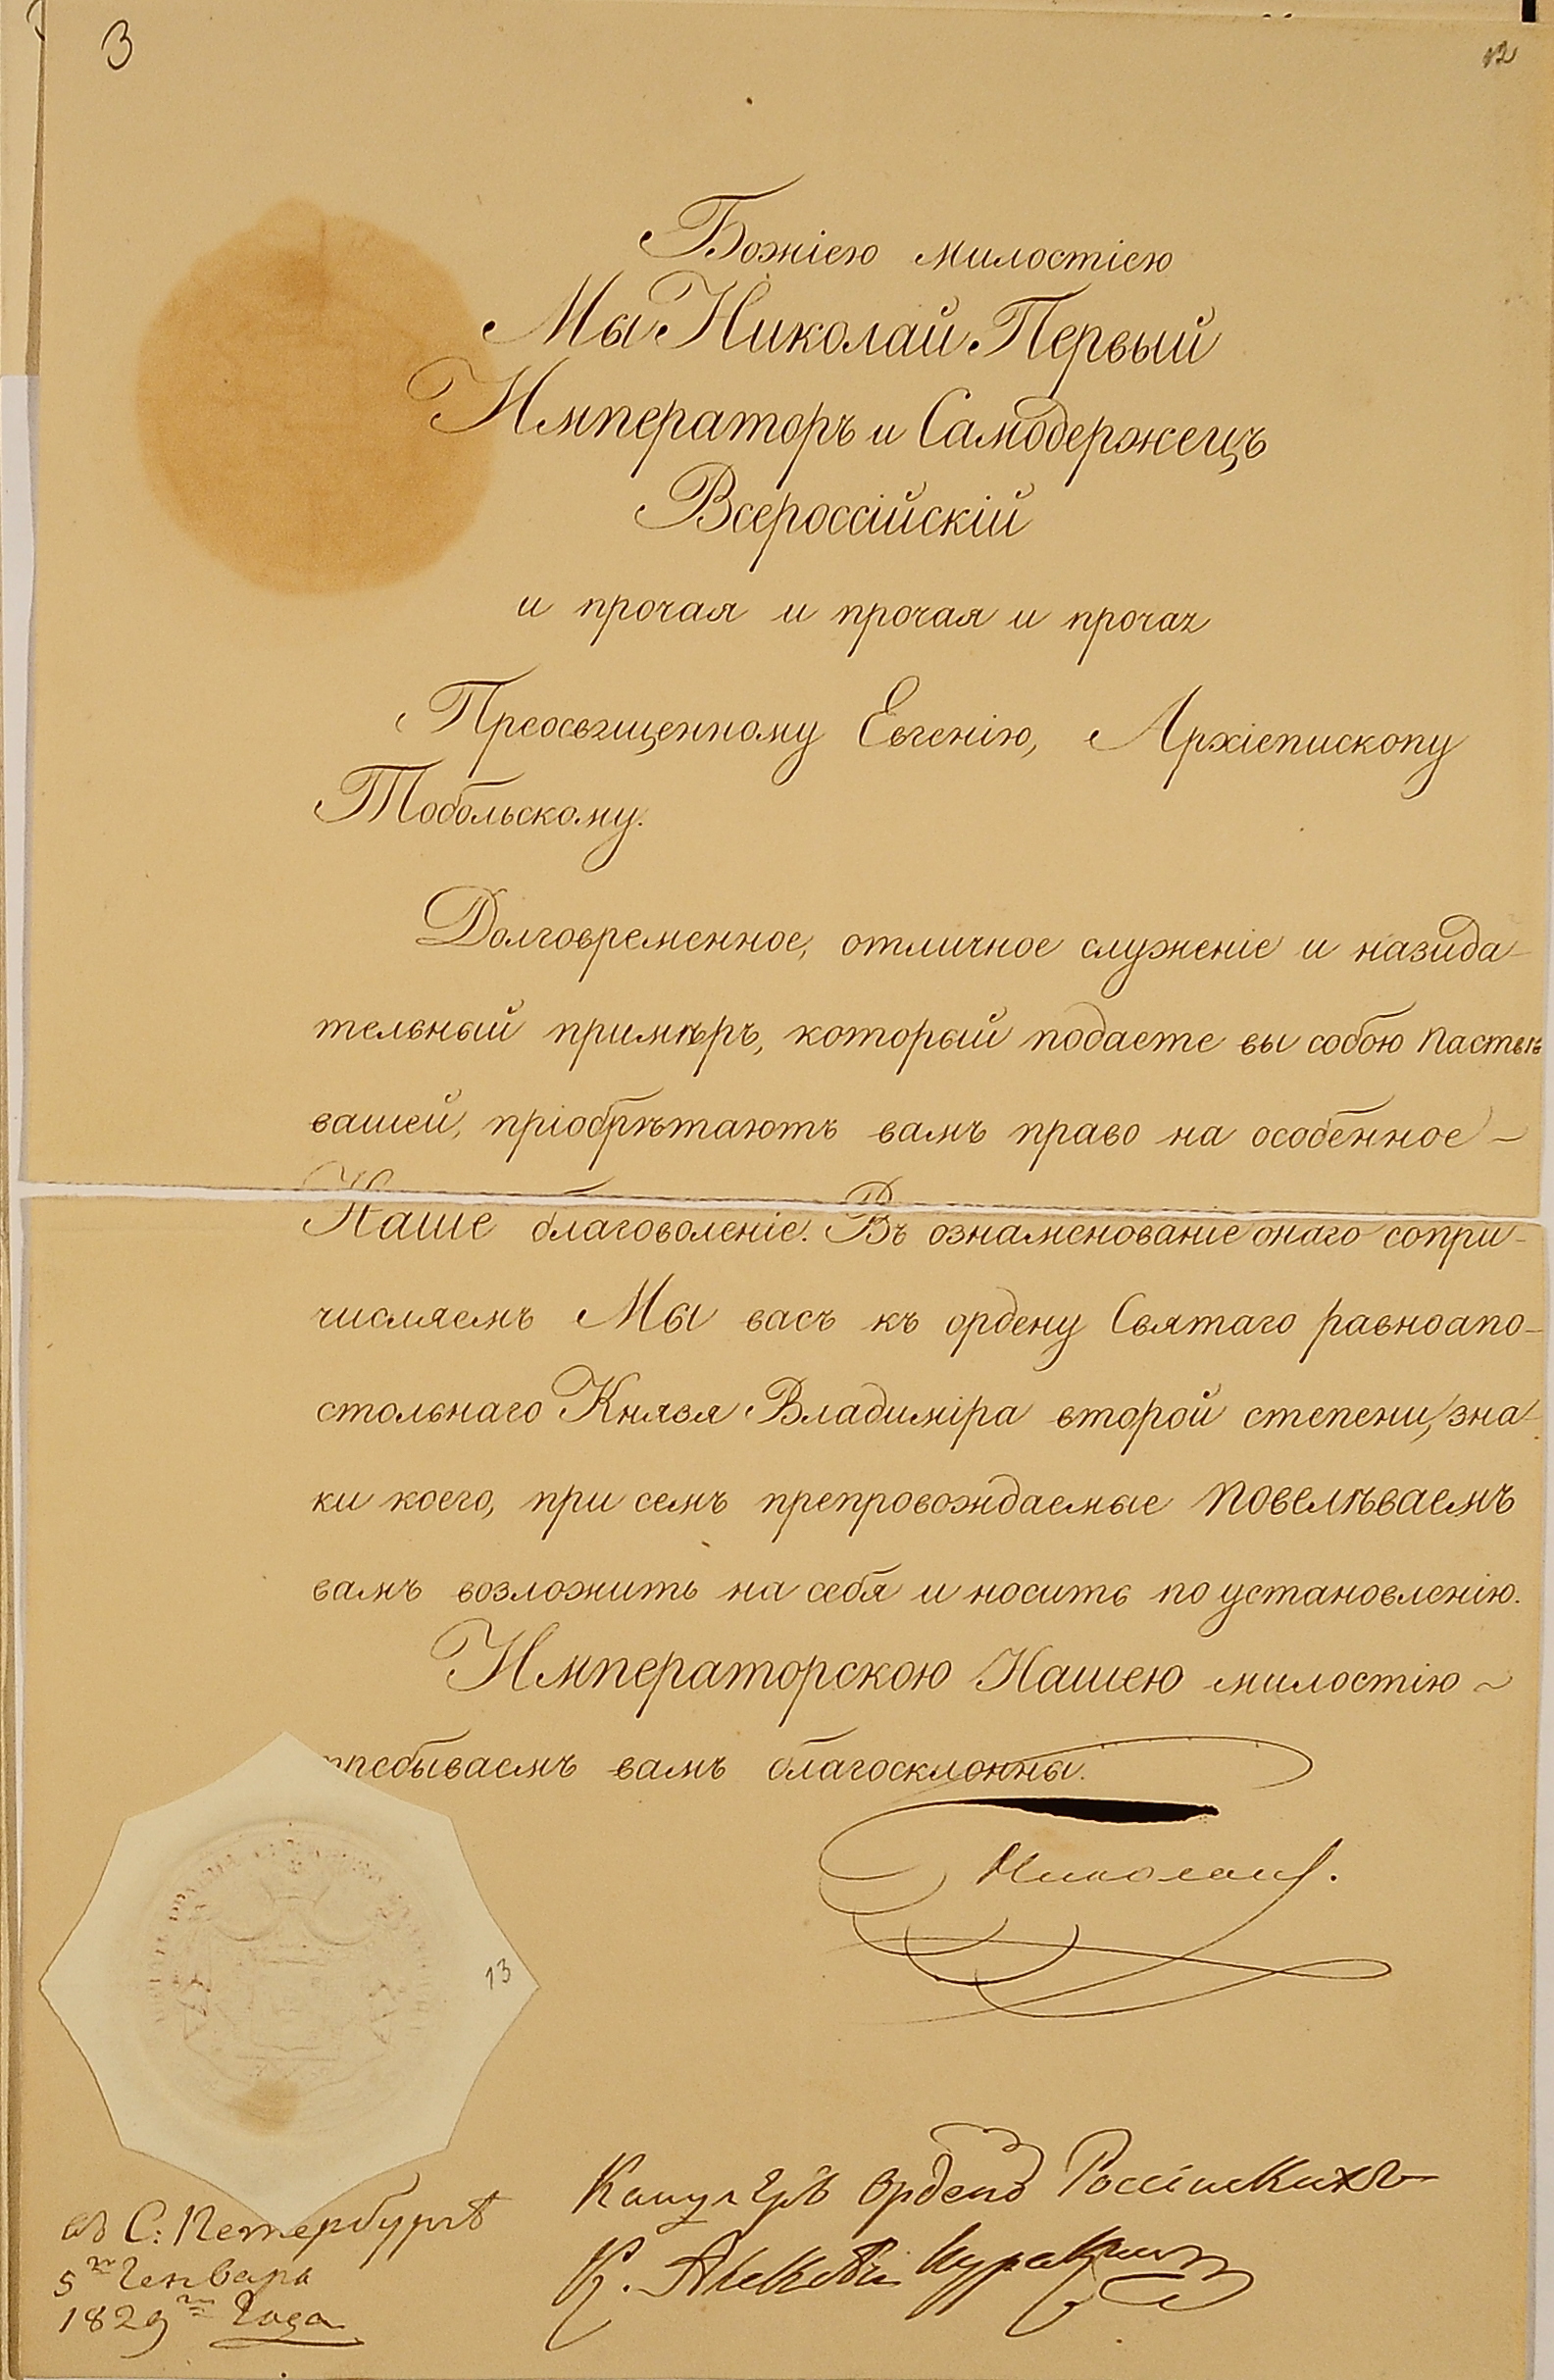 3
12
Божіею милостію
Мы Николай Первый
Императоръ и Самодержецъ
Всероссійскій
и прочая и прочая и прочая
Преосвященному Евгенію, Архіепископу
Тобольскому.
Долговременное, отличное служеніе и назида-
тельный примѣръ, который подаете вы собою паствѣ
вашей, пріобрѣтаютъ вамъ право на особенное
Наше благоволеніе. Въ ознаменованіе онаго сопри-
числяемъ Мы васъ къ ордену Святаго равноапо-
стольнаго Князя Владиміра второй степени, зна-
ки коего, при семъ препровождаемые повелѣваемъ
вамъ возложить на себя и носить по установленію.
Императорскою Нашею милостію
пребываемъ вамъ благосклонны.
Николай.
13
Канцлеръ Орденовъ Россійскихъ
К. Алексѣй Куракинъ
въ С: Петербургѣ
5го Генваря
1829го Года